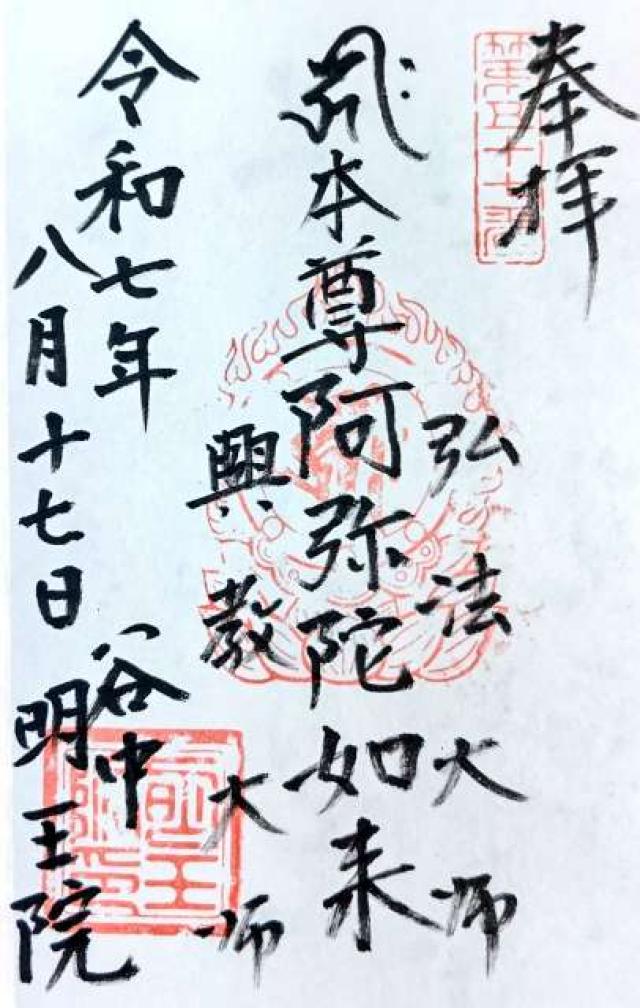 奉拝
弘法大師
本尊阿弥陀如来
興教大師
令和七年
八月十七日
谷中
明王院